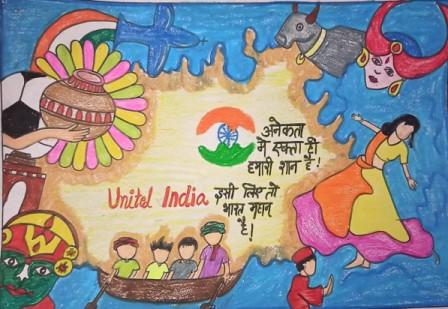 अनेकता
मे एकता ही
हमारी शान है!
Unitel India
इसी लिए तो
भारत महान
है!